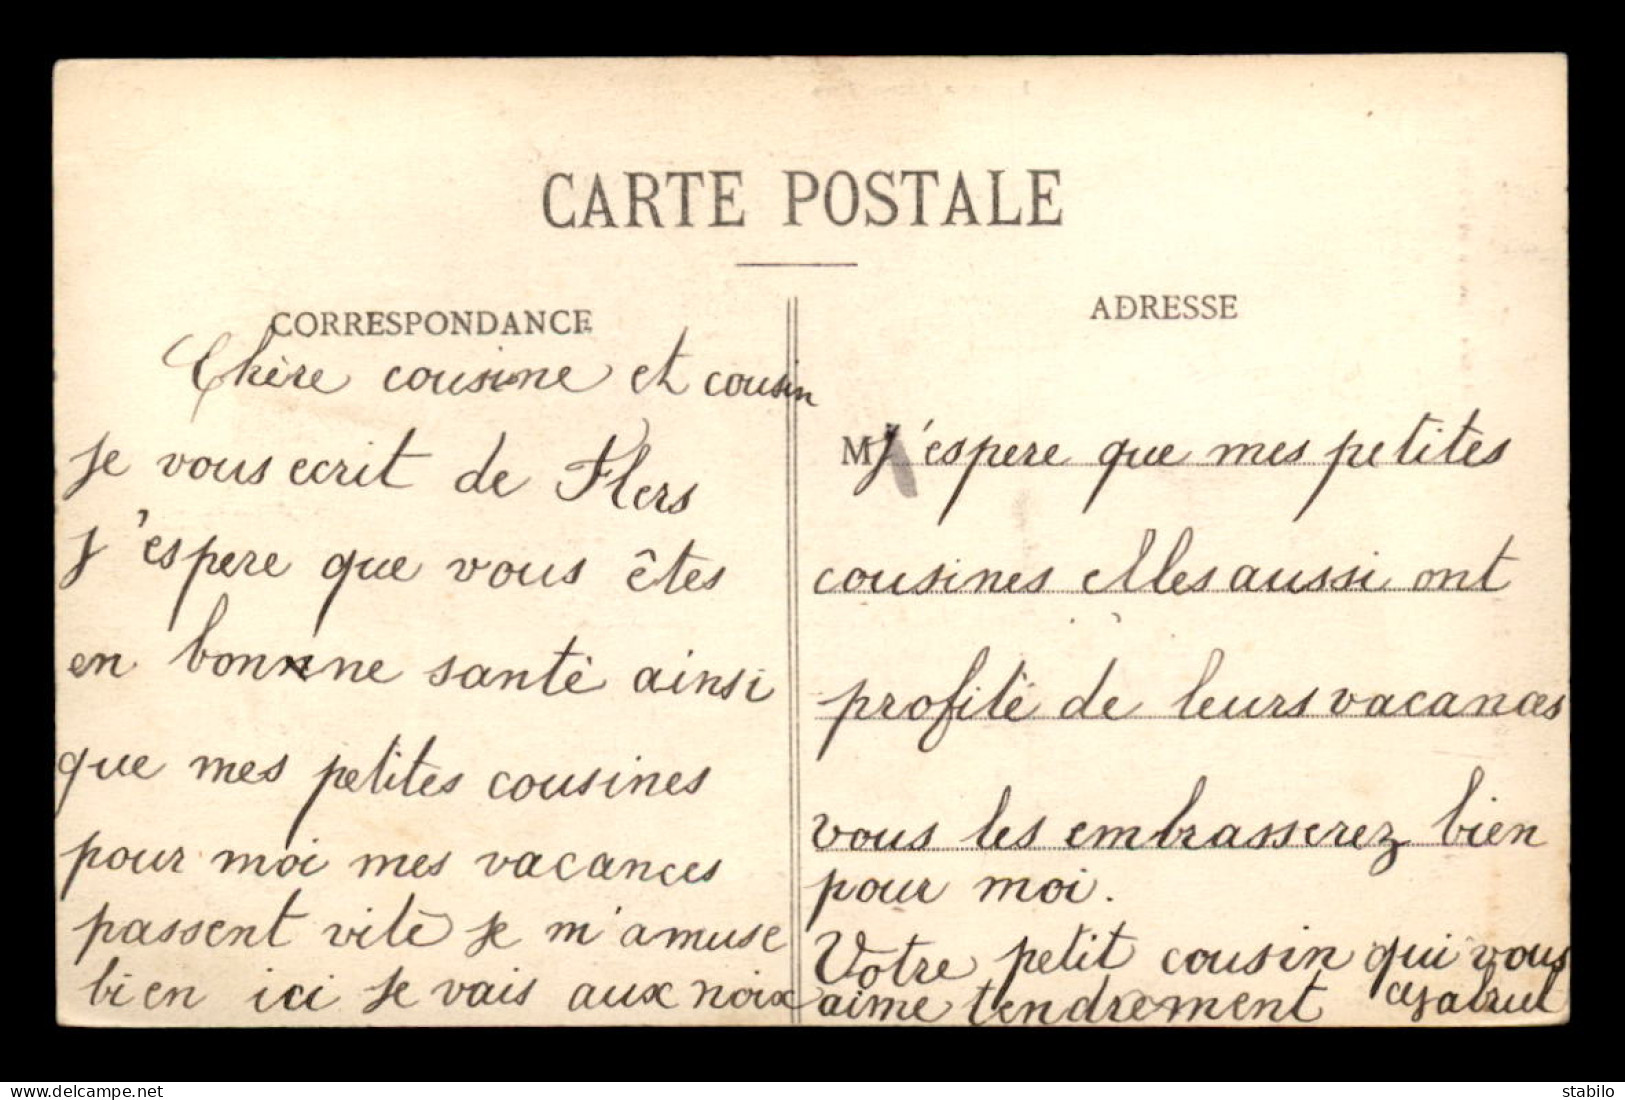 CARTE POSTALE
CORRESPONDANCE
Chère cousine et cousin
Je vous ecrit de Flers
J'espere que vous êtes
en bonnne santé ainsi
que mes petites cousines
pour moi mes vacances
passent vite je m'amuse
bien ici je vais aux noix
ADRESSE
M
J'espere que mes petites
cousines elles aussi ont
profité de leurs vacances
vous les embrasserez bien
pour moi.
Votre petit cousin qui vous
aime tendrement
delcampe.net
stabilo